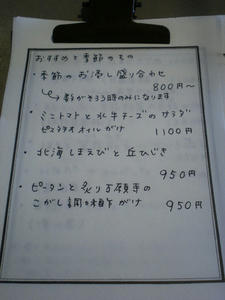 おすすめと季節のもの
・季節のお浸し盛り合わせ
800円〜
↳数がそろう時のみになります
・ミニトマトと水牛チーズのサラダ
ピスタチオオイルがけ 1100円
・北海しまえびと丘ひじき
950円
・ピータンと炙り万願寺の
こがし調味酢がけ 950円